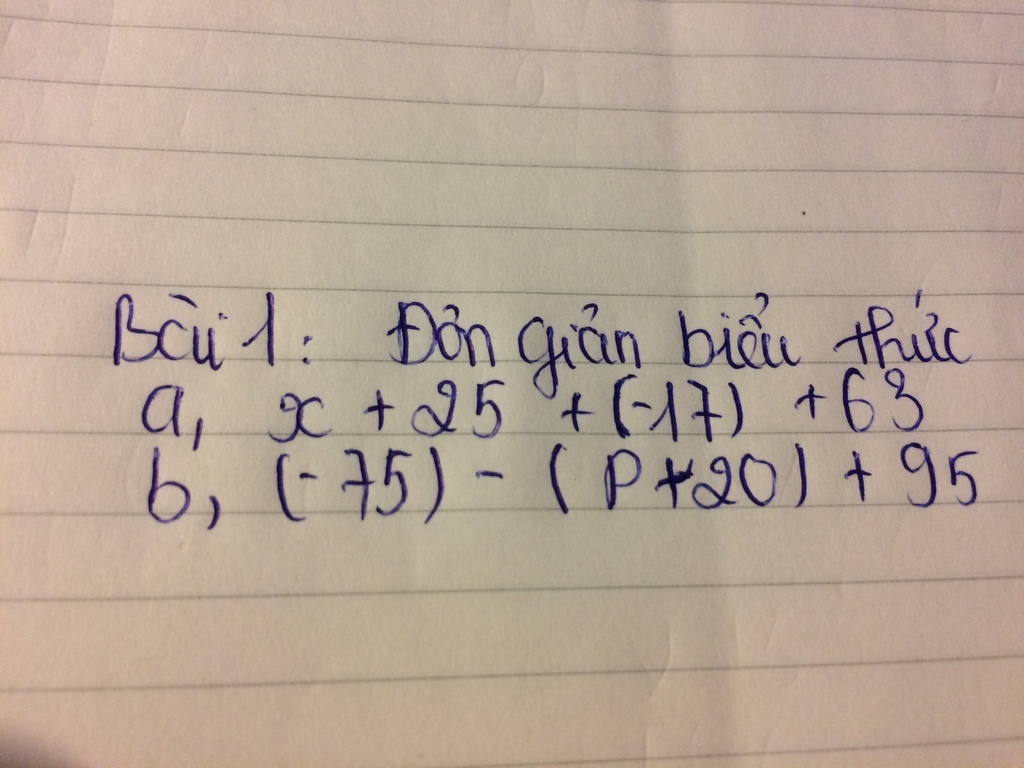 Bài 1: Đơn giản biểu thức
a, x + 25 + (-17) + 63
b, (-75) - (P+20) + 95